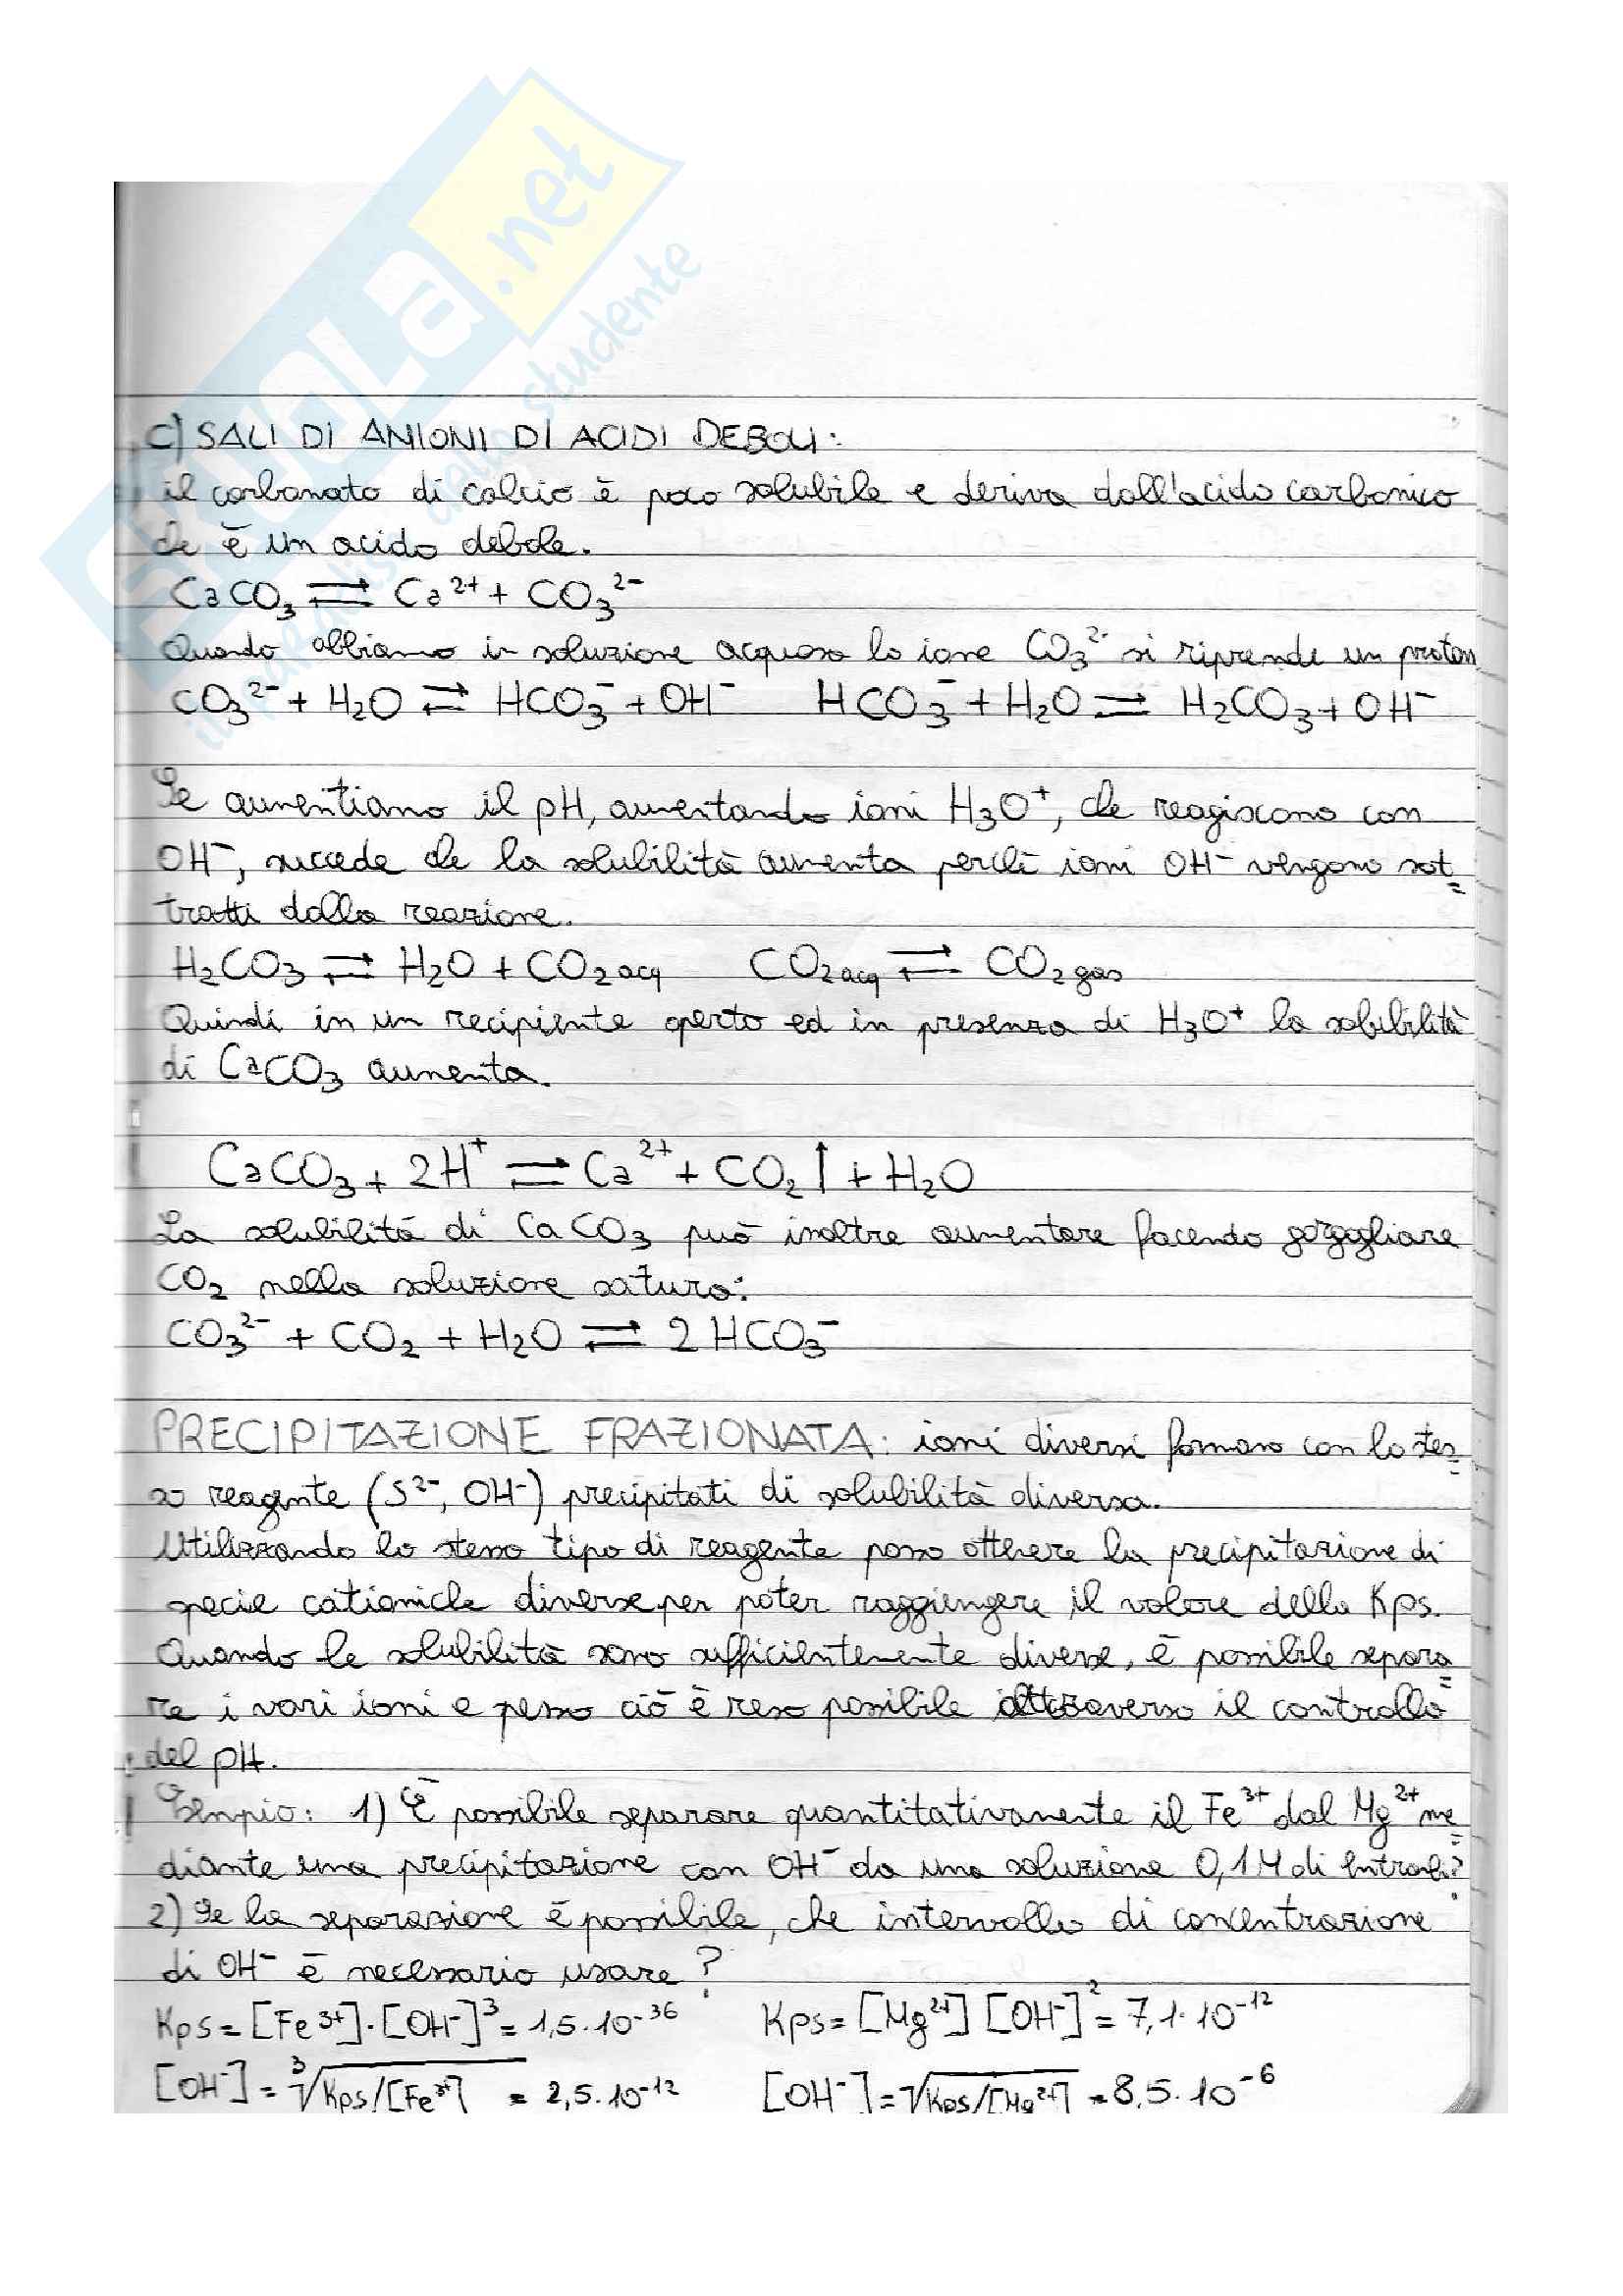 SKUOLA.net
il paradiso dello studente
C) SALI DI ANIONI DI ACIDI DEBOLI:
il carbonato di calcio è poco solubile e deriva dall'acido carbonico
che è un acido debole.
CaCO₃ ⇌ Ca²⁺ + CO₃²⁻
Quando abbiamo in soluzione acquosa lo ione CO₃²⁻ si riprende un proton
CO₃²⁻ + H₂O ⇌ HCO₃⁻ + OH⁻ HCO₃⁻ + H₂O ⇌ H₂CO₃ + OH⁻
Se aumentiamo il pH, aumentando ioni H₃O⁺, che reagiscono con
OH⁻, succede che la solubilità aumenta perchè ioni OH⁻ vengono sot=
tratti dalla reazione.
H₂CO₃ ⇌ H₂O + CO₂ acq CO₂ acq ⇌ CO₂ gas
Quindi in un recipiente aperto ed in presenza di H₃O⁺ la solubilità
di CaCO₃ aumenta.
CaCO₃ + 2H⁺ ⇌ Ca²⁺ + CO₂↑ + H₂O
La solubilità di CaCO₃ può inoltre aumentare facendo gorgogliare
CO₂ nella soluzione satura:
CO₃²⁻ + CO₂ + H₂O ⇌ 2 HCO₃⁻
PRECIPITAZIONE FRAZIONATA: ioni diversi formano con lo stes=
so reagente (S²⁻, OH⁻) precipitati di solubilità diversa.
Utilizzando lo stesso tipo di reagente posso ottenere la precipitazione di
specie cationiche diverse per poter raggiungere il valore della Kps.
Quando le solubilità sono sufficientemente diverse, è possibile separa=
re i vari ioni e spesso ciò è reso possibile attraverso il controllo
del pH.
Esempio: 1) È possibile separare quantitativamente il Fe³⁺ dal Mg²⁺ me=
diante una precipitazione con OH⁻ da una soluzione 0,1M di entrambi?
2) Se la separazione è possibile, che intervallo di concentrazione
di OH⁻ è necessario usare?
Kps = [Fe³⁺]·[OH⁻]³ = 1,5·10⁻³⁶ Kps = [Mg²⁺] [OH⁻]² = 7,1·10⁻¹²
[OH⁻] = ³√Kps/[Fe³⁺] = 2,5·10⁻¹² [OH⁻] = √Kps/[Mg²⁺] = 8,5·10⁻⁶